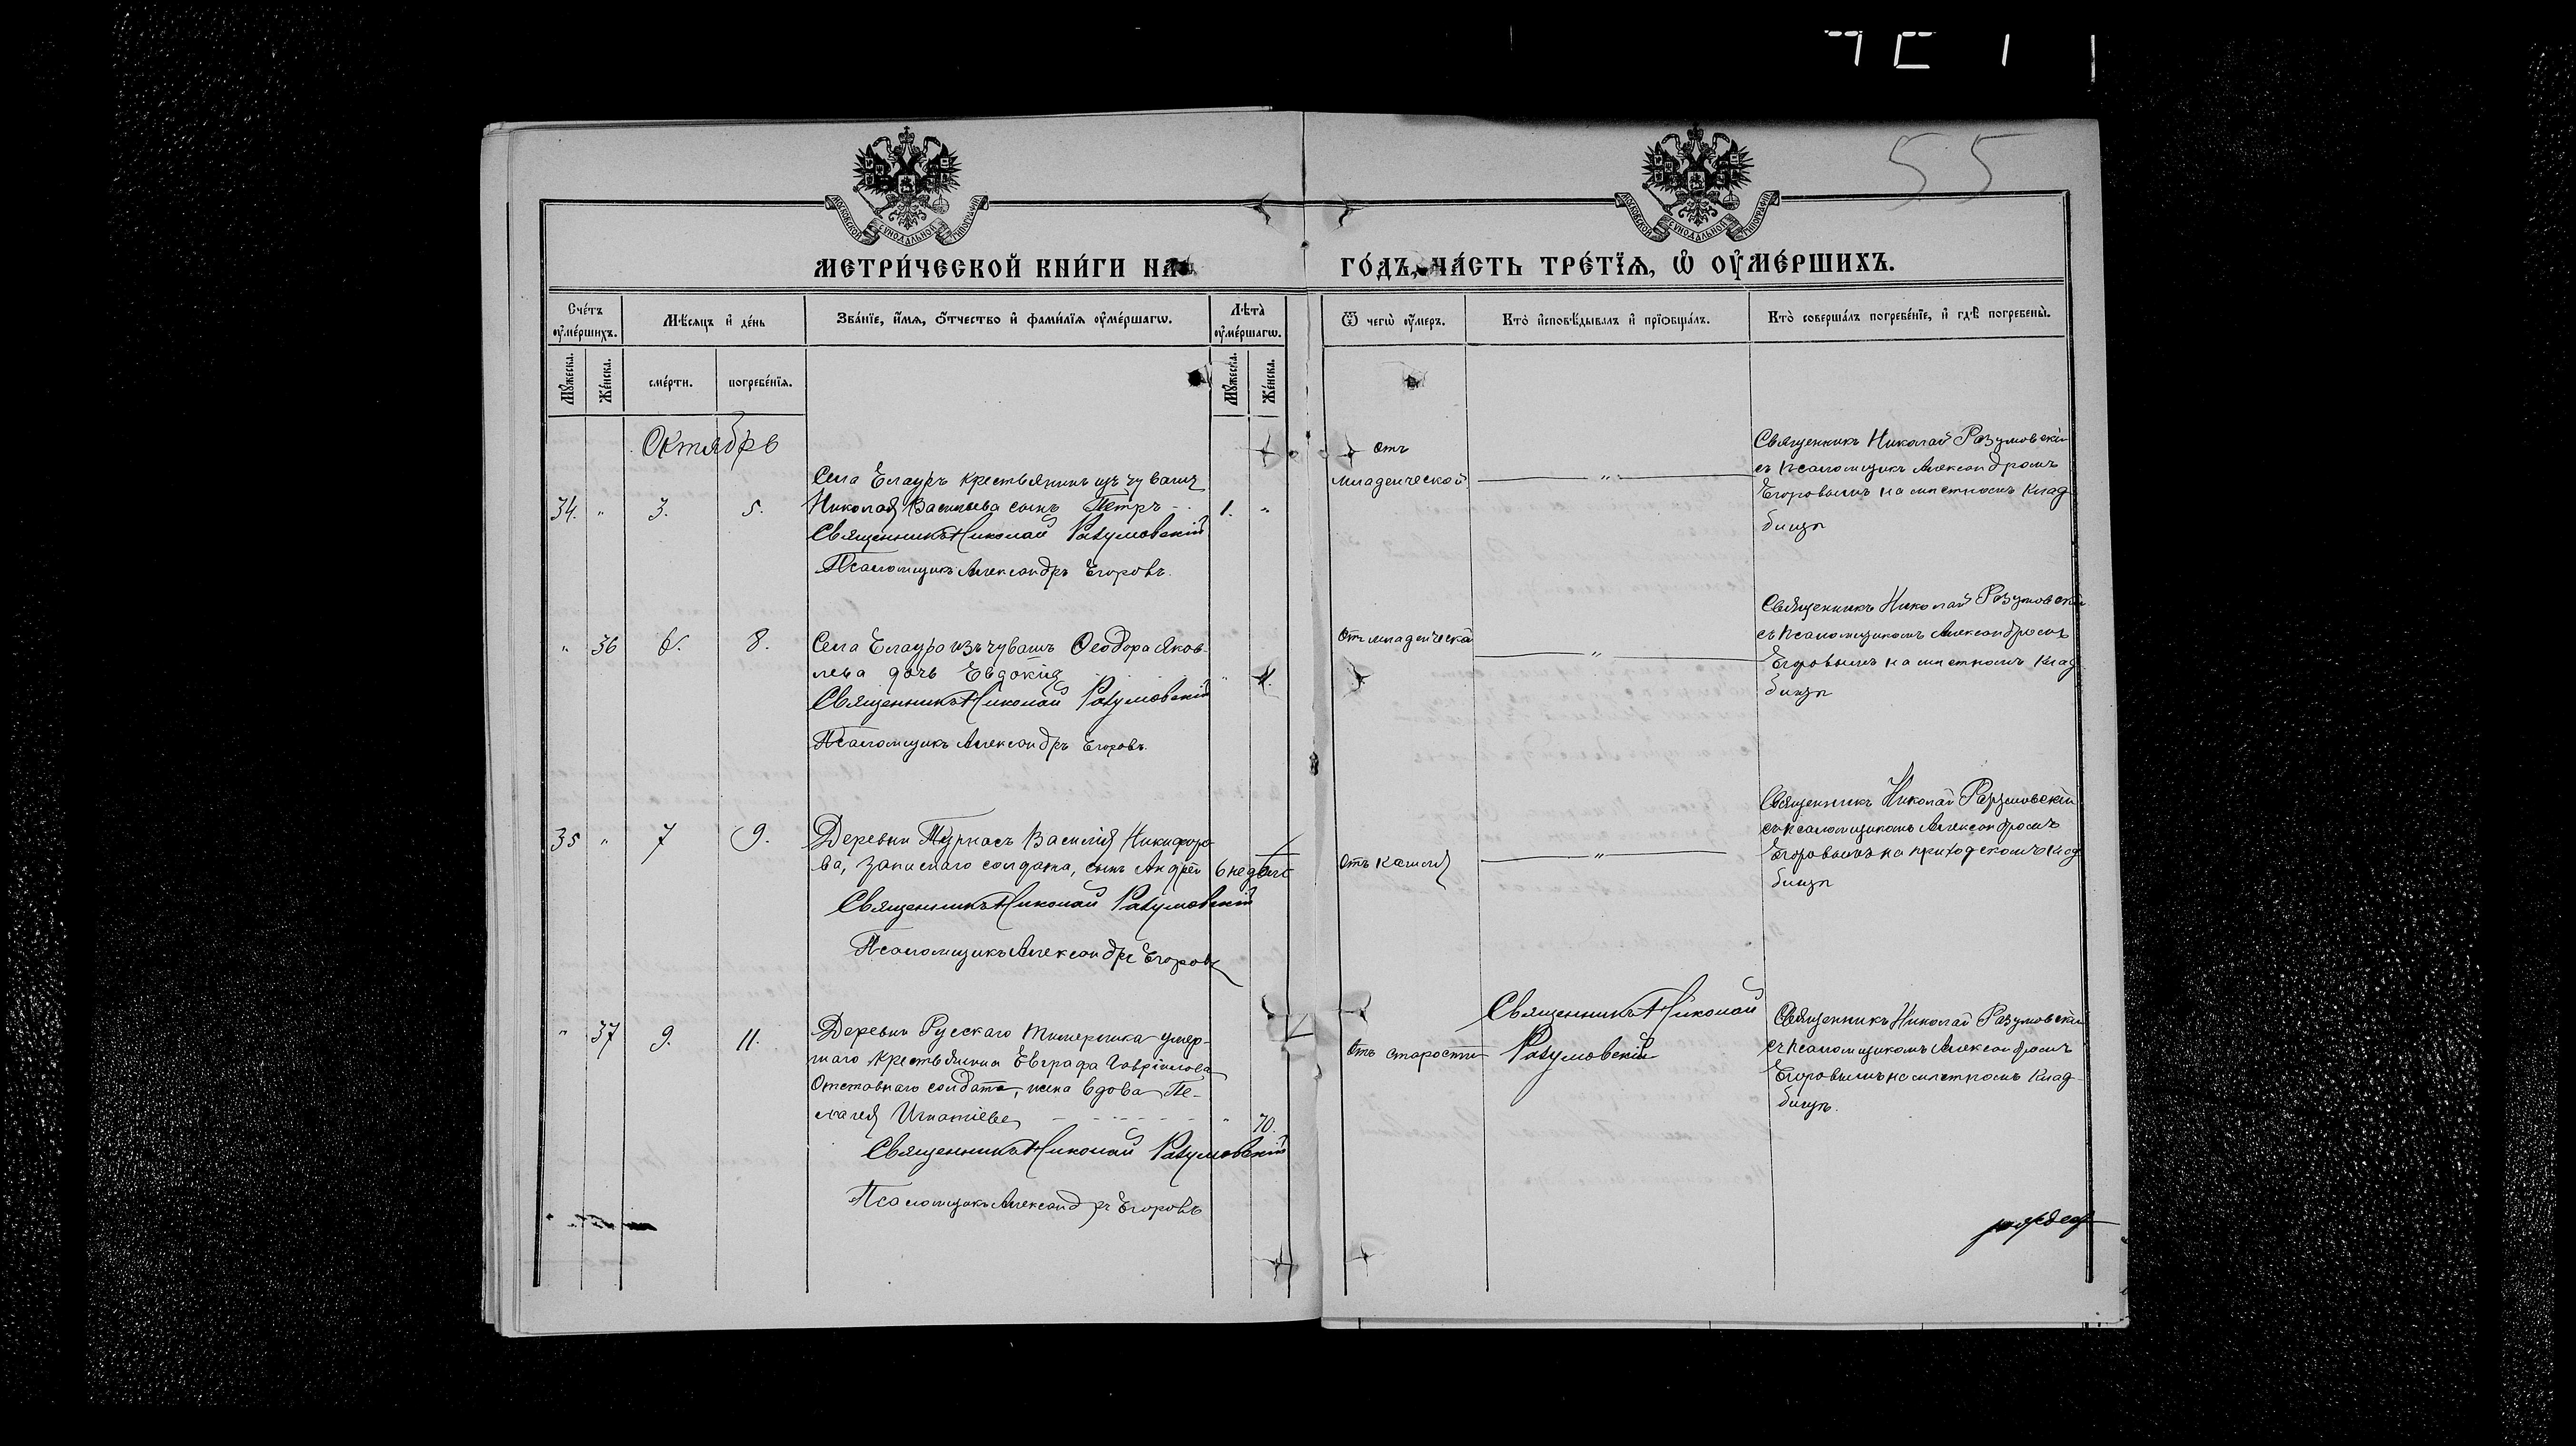 55
МОСКОВСКОЙ СѴНОДАЛЬНОЙ ТИПОГРАФІИ
МОСКОВСКОЙ СѴНОДАЛЬНОЙ ТИПОГРАФІИ
МЕТРИ́ЧЕСКОЙ КНИ́ГИ НА
ГО́ДЪ, ЧА́СТЬ ТРЕ́ТЇѦ, Ѡ҆ ОУ҆МЕ́РШИХЪ.
Сче́тъ
оу҆ме́ршихъ.
Мѣ́сѧцъ и҆ де́нь
Зва́нїе, и҆́мѧ, ѻ҆́тчество и҆ фами́лїѧ оу҆ме́ршагѡ.
Лѣ̀та
оу҆ме́ршагѡ.
Ѿ чегѡ̀ оу҆́меръ.
Кто̀ и҆сповѣ́дывалъ и҆ прїѻбща́лъ.
Кто̀ соверша́лъ погребе́нїе, и҆ гдѣ̀ погребены̀.
Мꙋ́жеска.
Же́нска.
сме́рти.
погребе́нїѧ.
Мꙋ́жеска.
Же́нска.
Октябрь
34. " 3. 5.
Села Елауръ крестьянинъ изъ чувашъ
Николая Васильева сынъ Петръ - 1. "
Священникъ Николай Разумовскій
Псаломщикъ Александръ Егоровъ.
отъ
младенческой "
Священникъ Николай Разумовскій
съ псаломщикъ Александромъ
Егоровымъ на мѣстномъ клад
бищѣ
" 36 6. 8.
Села Елауръ изъ чувашъ Ѳеодора Яков-
лева дочь Евдокія "
Священникъ Николай Разумовскій
Псаломщикъ Александръ Егоровъ.
Отъ младенческа "
Священникъ Николай Разумовскій
съ псаломщикомъ Александромъ
Егоровымъ на мѣстномъ клад
бищѣ
35 " 7 9.
Деревни Василія Никифоро
ва, запаснаго солдата, сынъ Андрей 6 недѣль
Священникъ Николай Разумовскій
Псаломщикъ Александръ Егоровъ
отъ кашля "
Священникъ Николай Разумовскій
съ псаломщикомъ Александромъ
Егоровымъ на приходскомъ клад
бищѣ
" 37 9. 11.
Деревни Русскаго умер-
шаго крестьянина Евграфа Гавріилова
Отставнаго солдата, жена вдова Пе-
лагея Игнатіева " 70.
Священникъ Николай Разумовскій
Псаломщикъ Александръ Егоровъ
Отъ старости
Священникъ Николай
Разумовскій
Священникъ Николай Разумовскій
съ псаломщикомъ Александромъ
Егоровымъ на мѣстномъ клад-
бищѣ.